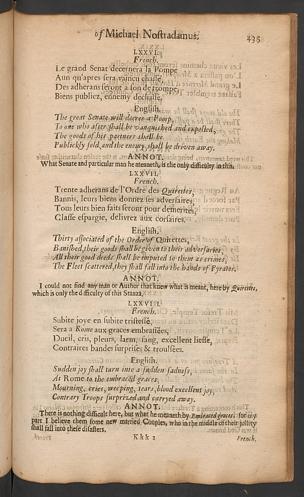 of Michael Nostradamus.
435
LXXVI.
French.
Le grand Senat decernera la Pompe
Aun qu'apres sera vaincu chassé,
Des adherans seront a son de trompe,
Biens publiez, ennemy dechassé.
English.
The great Senate will decree a Pomp,
To one who after shall be vanquished and expelled,
The goods of his partner shall be
Publickly sold, and the enemy shall be driven away.
ANNOT.
What Senate and particular man he meaneth, is the only difficulty in this.
LXXVII.
French.
Trente adherans de l'Ordre des Quirettes,
Bannis, leurs biens donnez ses adversaires,
Tous leurs bien faits seront pour demerites,
Classe espargie, delivrez aux corsaires.
English.
Thirty associated of the Order of Quirettes,
Banished, their goods shall be given to their adversaries,
All their good deeds shall be imputed to them as crimes,
The Fleet scattered, they shall fall into the hands of Pyrates.
ANNOT.
I could not find any man or Author that knew what is meant, here by Quirettes,
which is only the difficulty of this Stanza.
LXXVIII.
French.
Subite joye en subite tristesse,
Sera a Rome aux graces embrassées,
Dueil, cris, pleurs, larm, sang, excellent liesse,
Contraires bandes surprises & troussées.
English.
Sudden joy shall turn into a sudden sadness,
At Rome to the embraced graces.
Mourning, cries, weeping, tears, blood, excellent joy,
Contrary Troops surprized and carryed away.
ANNOT.
There is nothing difficult here, but what he meaneth by Embraced graces: for my
part I believe them some new married Couples, who in the middle of their jollity
shall fall into these disasters.
Kkk 2
French.